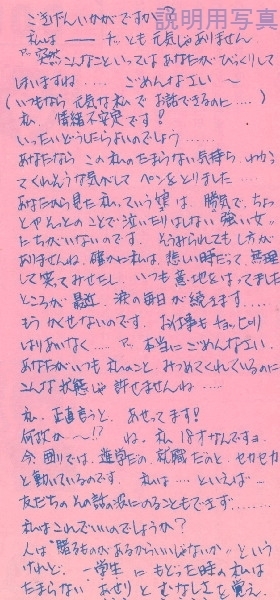 説明用写真
ごきげんいかがですか?
私は── チョとも元気じゃありません
アッ突然こんなこといってはあなたがびっくりして
しまいますね…… ごめんなさい〜
(いつもなら元気な私でお話できるのに……)
私、情緒不安定です!
いったいどうしたらよいのでしょう……
あなたなら この私のたまらない気持ち、わかっ
てくれそうな気がして ペンをとりました……
あなたから見た私っていう娘は、勝気で、ちょっ
とやそっとのことで泣いたりはしない強い女
たちがいないのです。そうみられてもし方が
ありませんね。確かに私は、悲しい時だって、無理
して笑ってみせたし、いつも意地をはってました
ところが最近、涙の毎日が続きます……
もうかくせないのです。お仕事もチョッピリ
はりあいなく…… アッ 本当にごめんなさい。
あなたがいつも私のこと、みつめてくれているのに
こんな状態じゃ許せませんね……
私、正直言うと、あせってます!
何故か〜!? ね、私18才なんですョ。
今回りでは、進学だの、就職だのと、セカセカ
と動いているのです。私は……といえば……
友だちのその話の波にのることもできず……
私はこれでいいのでしょうか?
人は"踊るものがあるからいいじゃないか"という
けれど、一学生にもどった時の私は
たまらない あせりと むなしさを覚え、